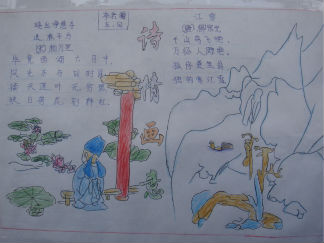 晓出净慈寺
送林子方
毕竟西湖六月中,
风光不与四时同。
接天莲叶无穷碧,
映日荷花别样红。
诗情画意
江雪
千山鸟飞绝,
万径人踪灭。
孤舟蓑笠翁,
独钓寒江雪。